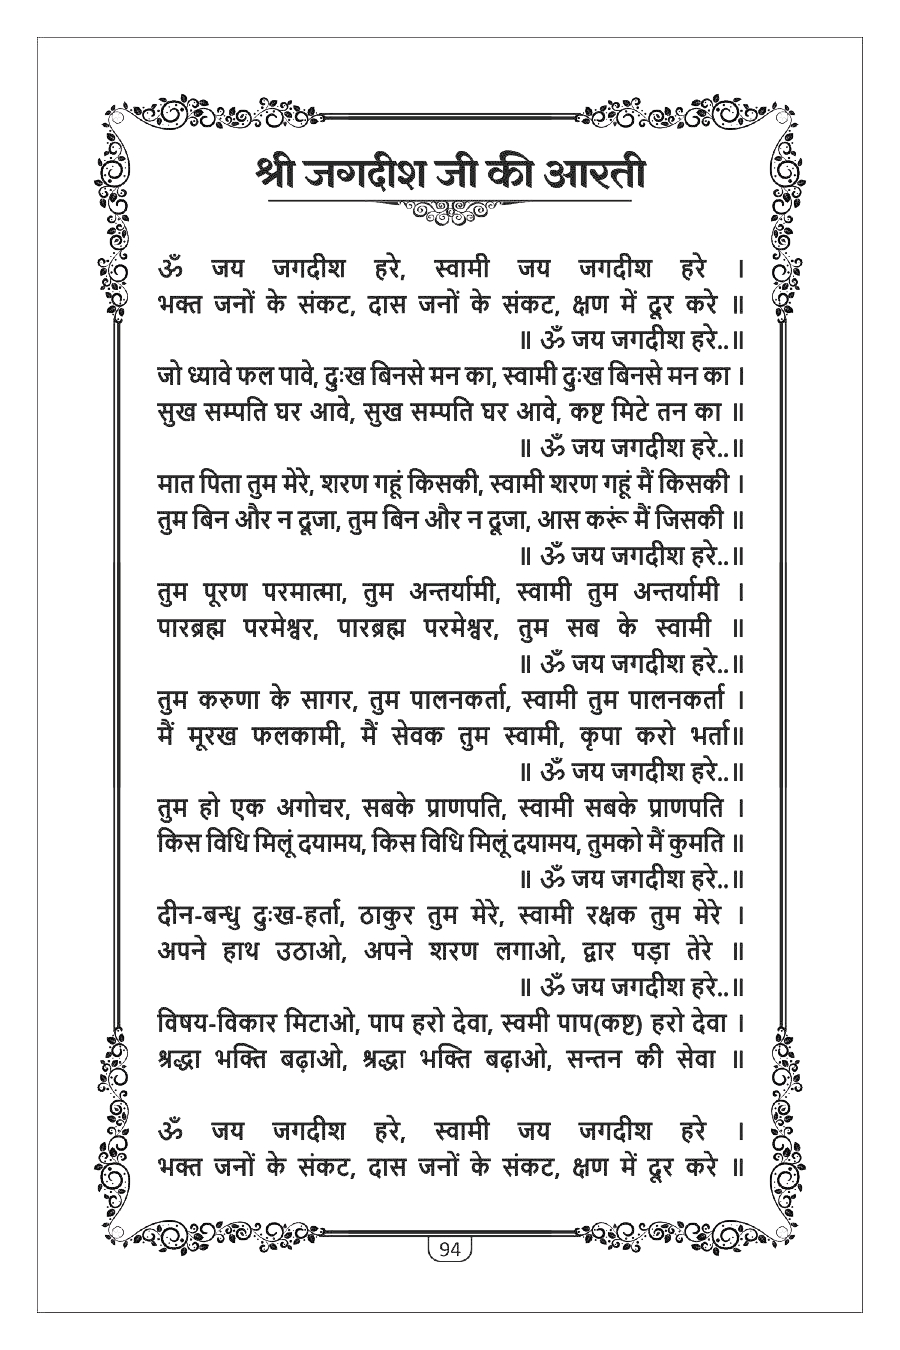 श्री जगदीश जी की आरती
ॐ जय जगदीश हरे, स्वामी जय जगदीश हरे ।
भक्त जनों के संकट, दास जनों के संकट, क्षण में दूर करे ॥
॥ ॐ जय जगदीश हरे..॥
जो ध्यावे फल पावे, दुःख बिनसे मन का, स्वामी दुःख बिनसे मन का ।
सुख सम्पति घर आवे, सुख सम्पति घर आवे, कष्ट मिटे तन का ॥
॥ ॐ जय जगदीश हरे..॥
मात पिता तुम मेरे, शरण गहूं किसकी, स्वामी शरण गहूं मैं किसकी ।
तुम बिन और न दूजा, तुम बिन और न दूजा, आस करूं मैं जिसकी ॥
॥ ॐ जय जगदीश हरे..॥
तुम पूरण परमात्मा, तुम अन्तर्यामी, स्वामी तुम अन्तर्यामी ।
पारब्रह्म परमेश्वर, पारब्रह्म परमेश्वर, तुम सब के स्वामी ॥
॥ ॐ जय जगदीश हरे..॥
तुम करुणा के सागर, तुम पालनकर्ता, स्वामी तुम पालनकर्ता ।
मैं मूरख फलकामी, मैं सेवक तुम स्वामी, कृपा करो भर्ता॥
॥ ॐ जय जगदीश हरे..॥
तुम हो एक अगोचर, सबके प्राणपति, स्वामी सबके प्राणपति ।
किस विधि मिलूं दयामय, किस विधि मिलूं दयामय, तुमको मैं कुमति ॥
॥ ॐ जय जगदीश हरे..॥
दीन-बन्धु दुःख-हर्ता, ठाकुर तुम मेरे, स्वामी रक्षक तुम मेरे ।
अपने हाथ उठाओ, अपने शरण लगाओ, द्वार पड़ा तेरे ॥
॥ ॐ जय जगदीश हरे..॥
विषय-विकार मिटाओ, पाप हरो देवा, स्वमी पाप(कष्ट) हरो देवा ।
श्रद्धा भक्ति बढ़ाओ, श्रद्धा भक्ति बढ़ाओ, सन्तन की सेवा ॥
ॐ जय जगदीश हरे, स्वामी जय जगदीश हरे ।
भक्त जनों के संकट, दास जनों के संकट, क्षण में दूर करे ॥
94